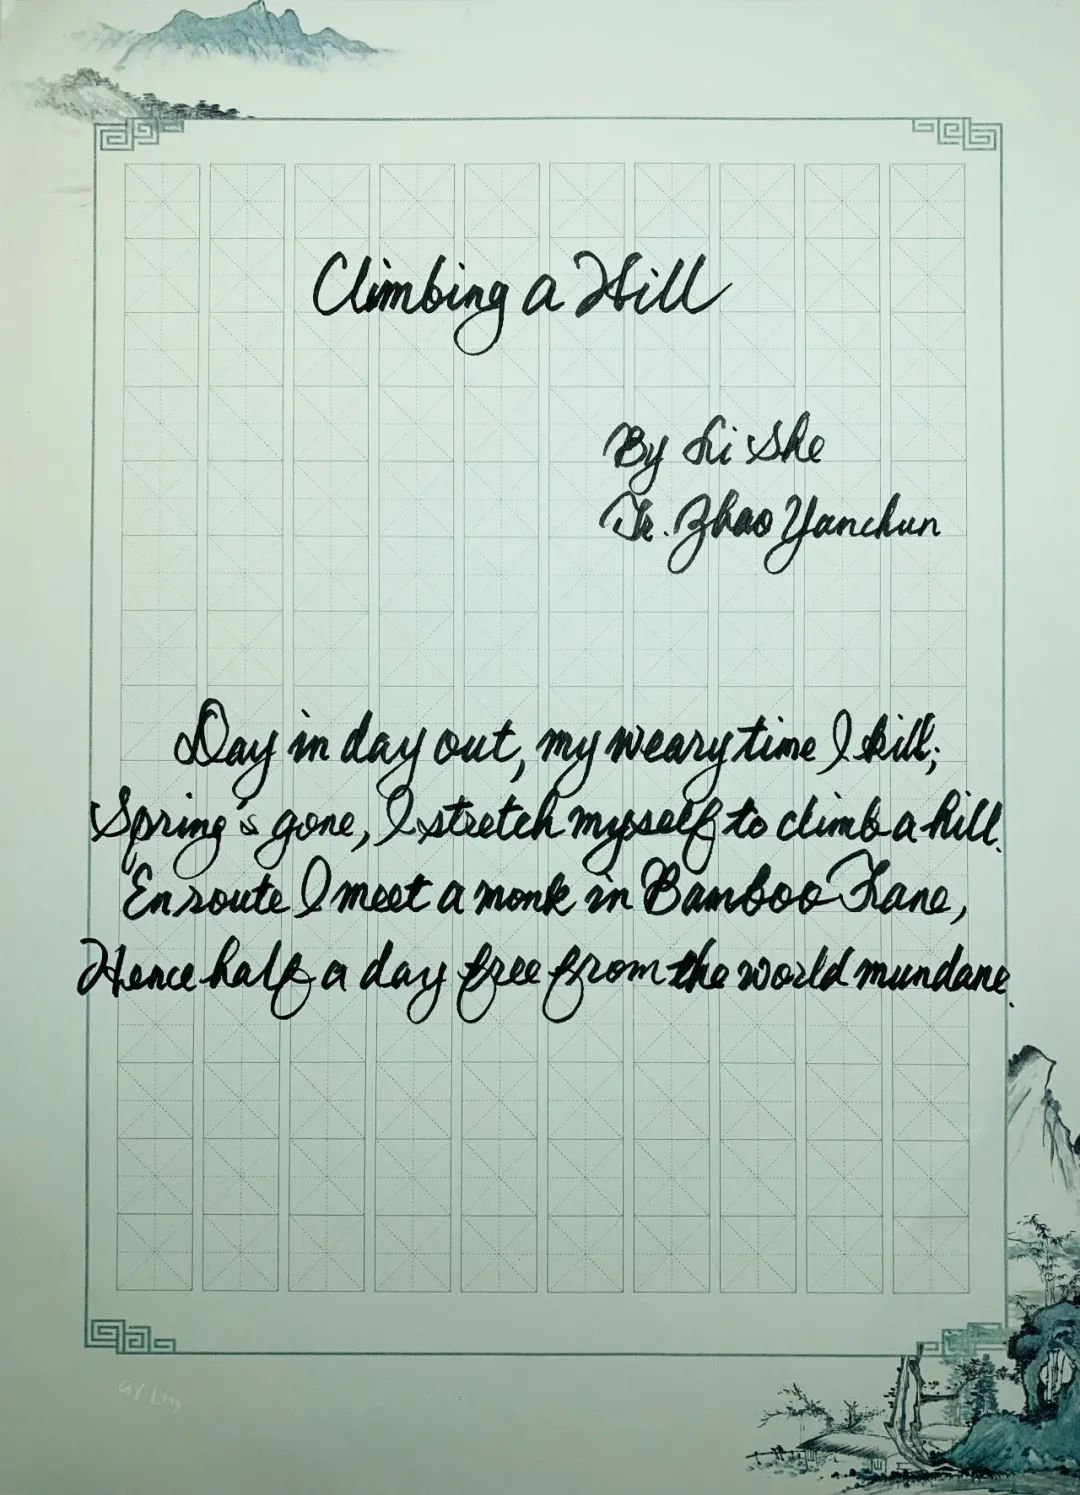 Climbing a Hill
By Li She
Tr. Zhao Yanchun
Day in day out, my weary time I kill;
Spring's gone, I stretch myself to climb a hill.
En route I meet a monk in Bamboo Lane,
Hence half a day free from the world mundane.
GY Ling